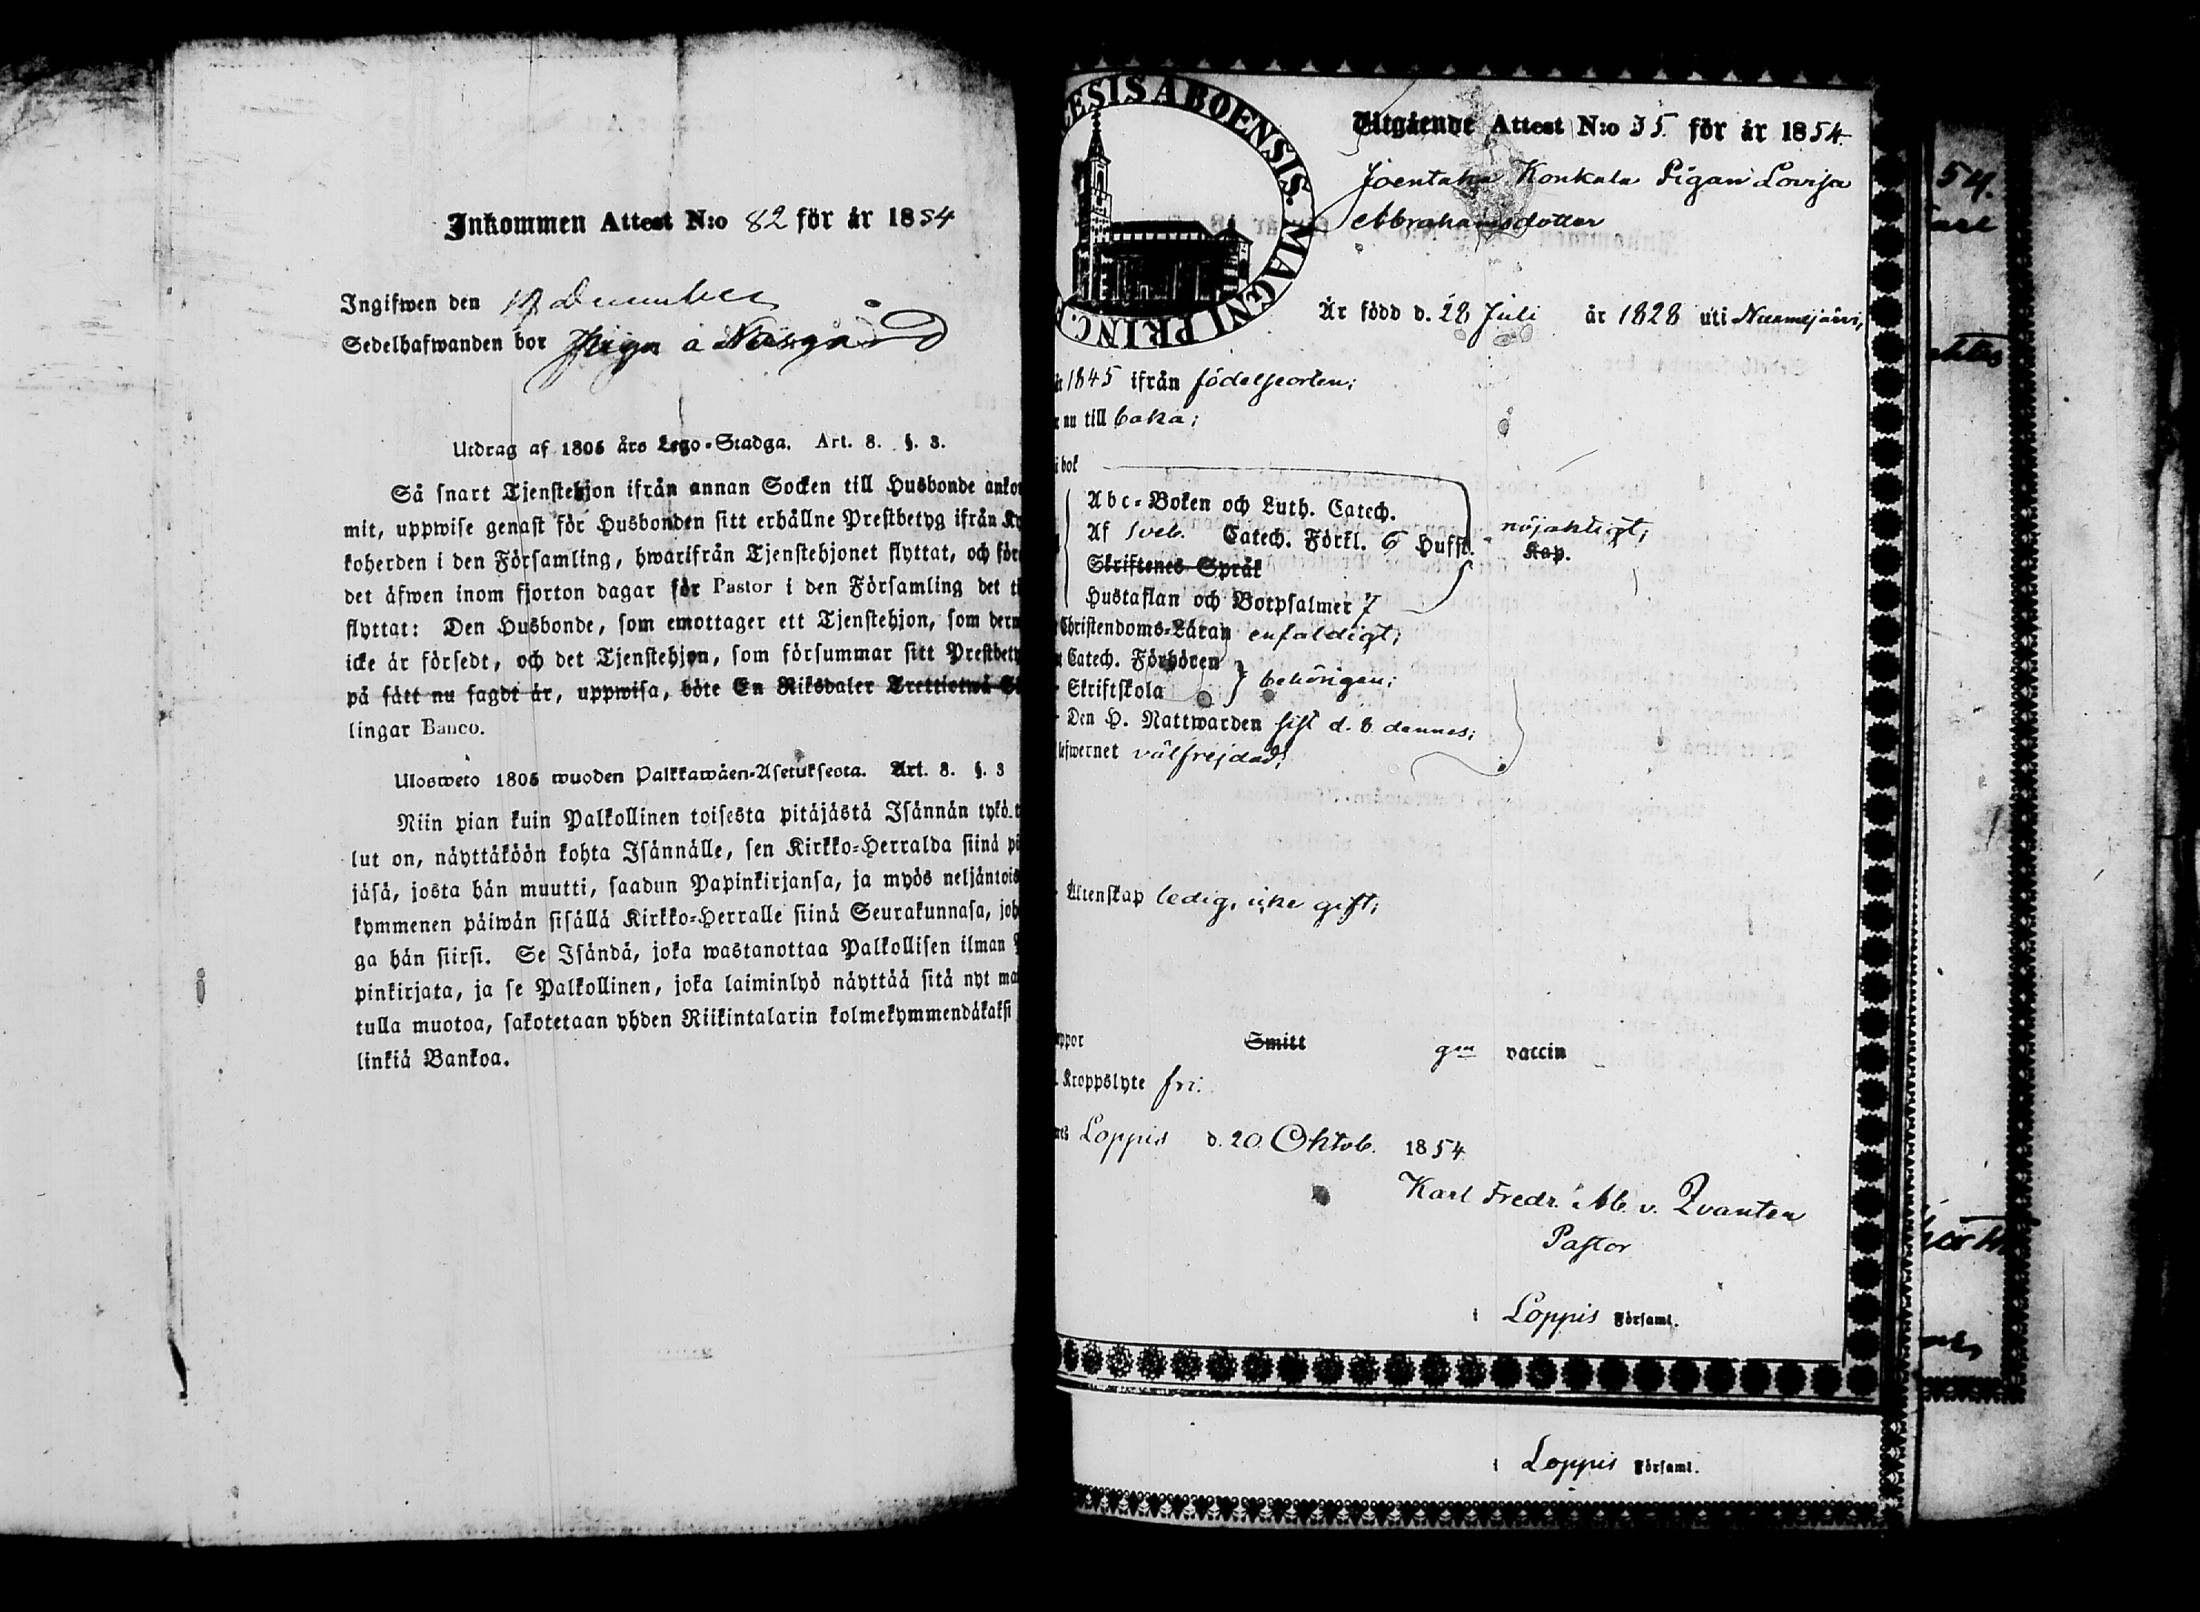 Inkommen Attest N:o 82 för år 1854
Ingifwen den 19 December
Sedelhafwanden bor Piga å Näsgård
Utdrag af 1805 års Lego-Stadga. Art. 8. §. 3.
Så snart Tjenstehjon ifrån annan Socken till Husbonde ankom
mit, uppwise genast för Husbonden sitt erhållne Prestbetyg ifrån Ky
koherden i den Församling, hwarifrån Tjenstehjonet flyttat, och före
det äfwen inom fjorton dagar för Pastor i den Församling det ti
flyttat: Den Husbonde, som emottager ett Tjenstehjon, som derm
icke är försedt, och det Tjenstehjon, som försummar sitt Prestbety
på sätt nu sagdt är, uppwisa, böte En Riksdaler Trettiotwå S
lingar Banco.
Ulosweto 1805 wuoden Palkkawäen-Asetuksesta. Art. 8. §. 3
Niin pian kuin Palkollinen toisesta pitäjästä Isännän tykö t
lut on, näyttäköön kohta Isännälle, sen Kirkko-Herralda siinä pi
jäsä, josta hän muutti, saadun Papinkirjansa, ja myös neljäntois
kymmenen päiwän sisällä Kirkko-Herralle siinä Seurakunnasa, joh
ga hän siirsi. Se Isändä, joka wastanottaa Palkollisen ilman
pinkirjata, ja se Palkollinen, joka laiminlyö näyttää sitä nyt ma
tulla muotoa, sakotetaan yhden Riikintalarin kolmekymmendäkaksi
linkiä Bankoa.
CESIS ABOENSIS. MAGNI PRINC.
Utgående Attest N:o 35. för år 1854.
Joentaka Konkala Pigan Lovisa
Abrahamsdotter
Är född d. 28 Juli år 1828 uti Nurmijärvi,
1845 ifrån födelseorten;
nu till baka;
i bok
Abc-Boken och Luth. Catech.
Af Sveb. Catech. Förkl. 6 Hufst. nöjaktigt;
Kap.
Skriftenes Språk
Hustaflan och Botpsalmer 7
Christendoms-Läran enfaldigt;
Catech. Förhören
Skriftskola behörigen;
Den H. Nattwarden sist d. 8 dennes;
lefwernet välfrejdad;
Äktenskap ledig, icke gift;
ppor Smitt gm vaccin
Kroppslyte fri.
Loppis d. 20 Oktob. 1854
Karl Fredr. Ab. v. Qvanten
Pastor
i Loppis Församl.
i Loppis Församl.
54.